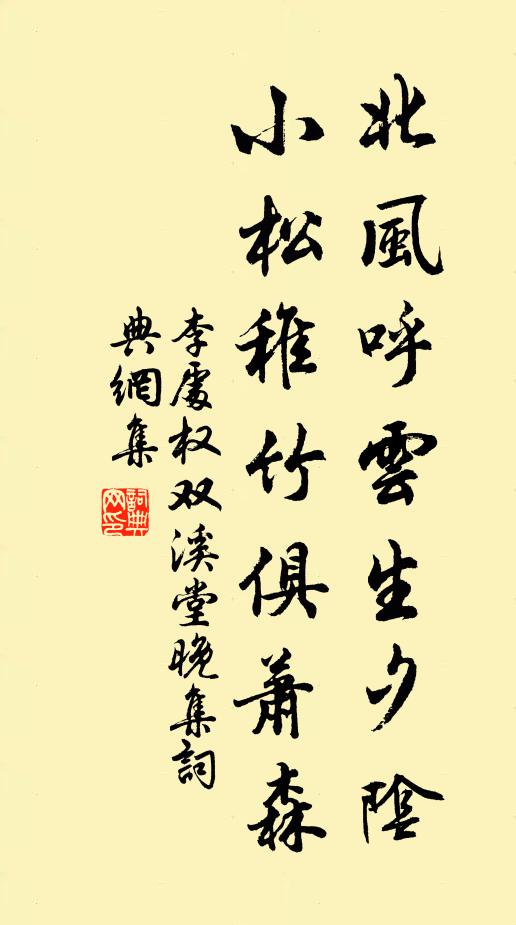 北風呼雲生夕陰
小松稚竹俱蕭森
李處权双溪堂晚集詞
典網集
詞典
网印